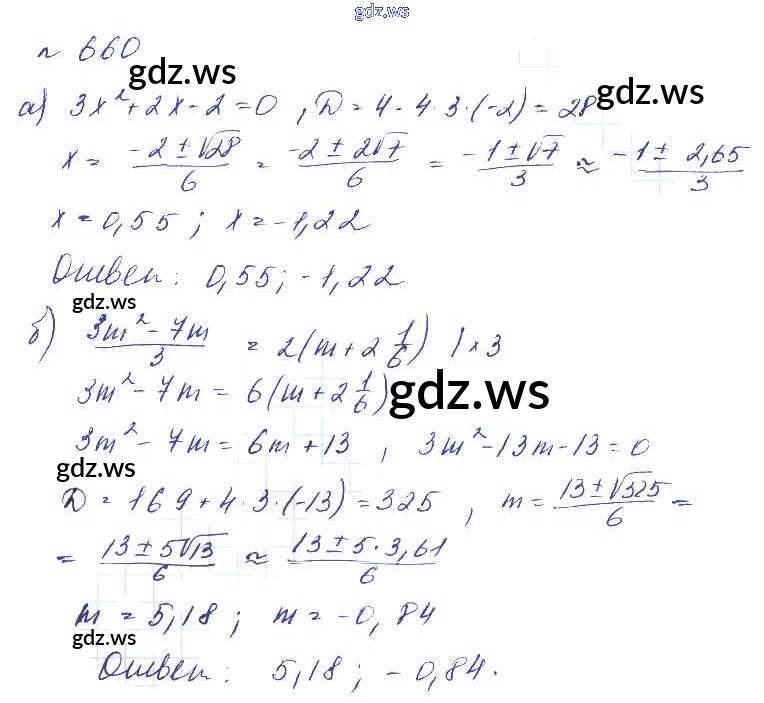 gdz.ws
n 660
gdz.ws
gdz.ws
а) 3x² + 2x - 2 = 0 , D = 4 - 4·3·(-2) = 28
x = (-2 ± √28)/6 = (-2 ± 2√7)/6 = (-1 ± √7)/3 ≈ (-1 ± 2,65)/3
x = 0,55 ; x = -1,22
Ответ: 0,55; -1,22
gdz.ws
б) (3m² - 7m)/3 = 2(m + 2 1/6) | × 3
3m² - 7m = 6(m + 2 1/6)
gdz.ws
3m² - 7m = 6m + 13 , 3m² - 13m - 13 = 0
gdz.ws
D = 169 + 4·3·(-13) = 325 , m = (13 ± √325)/6 =
= (13 ± 5√13)/6 ≈ (13 ± 5·3,61)/6
gdz.ws
m = 5,18 ; m = -0,84
gdz.ws
Ответ: 5,18 ; -0,84.